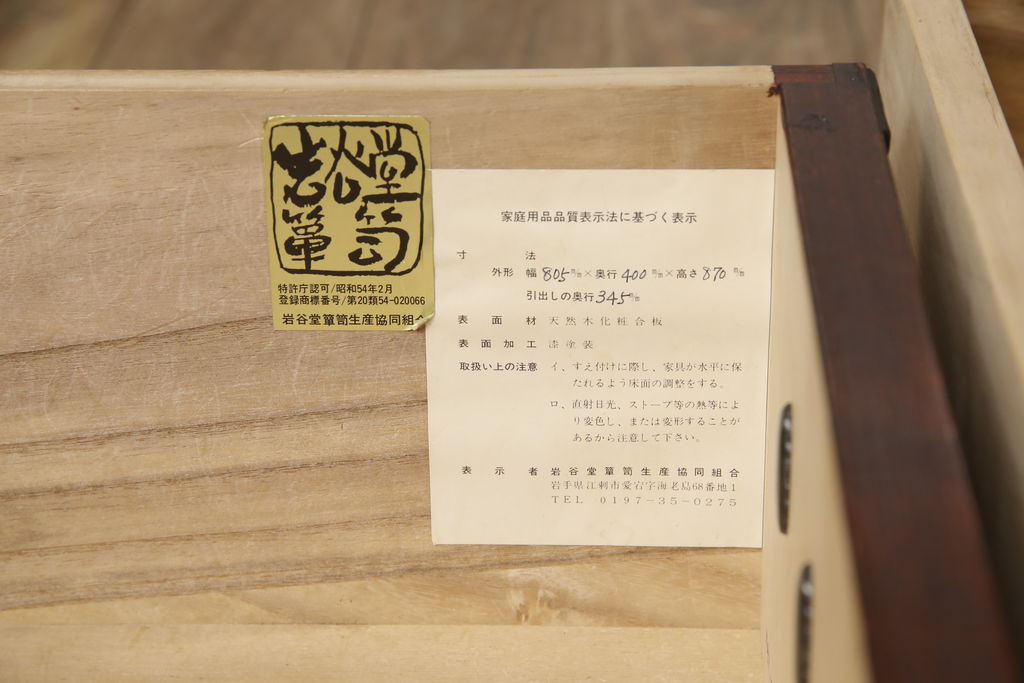 岩谷堂
簞笥
特許庁認可/昭和54年2月
登録商標番号/第20類54-020066
岩谷堂簞笥生産協同組合
家庭用品品質表示法に基づく表示
寸法
外形 幅 805m/m×奥行 400m/m×高さ 870m/m
引出しの奥行 345m/m
表面材 天然木化粧合板
表面加工 漆塗装
取扱い上の注意 イ、すえ付けに際し、家具が水平に保
たれるよう床面の調整をする。
ロ、直射日光、ストーブ等の熱等によ
り変色し、または変形することが
あるから注意して下さい。
表示者 岩谷堂簞笥生産協同組合
岩手県江刺市愛宕字海老島68番地1
TEL 0197-35-0275